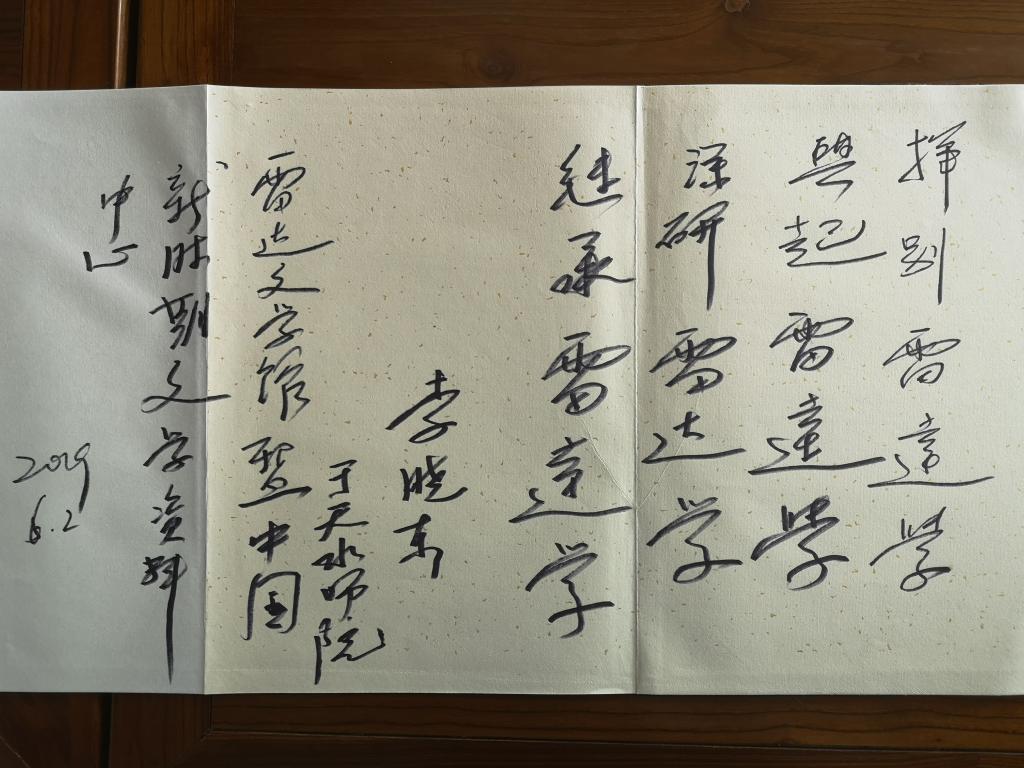 揮别雷達學
興起雷達學
深研雷达学
继承雷達学
李晓东
于天水师院
雷达文学馆暨中国
新时期文学资料
中心
2019
6.2